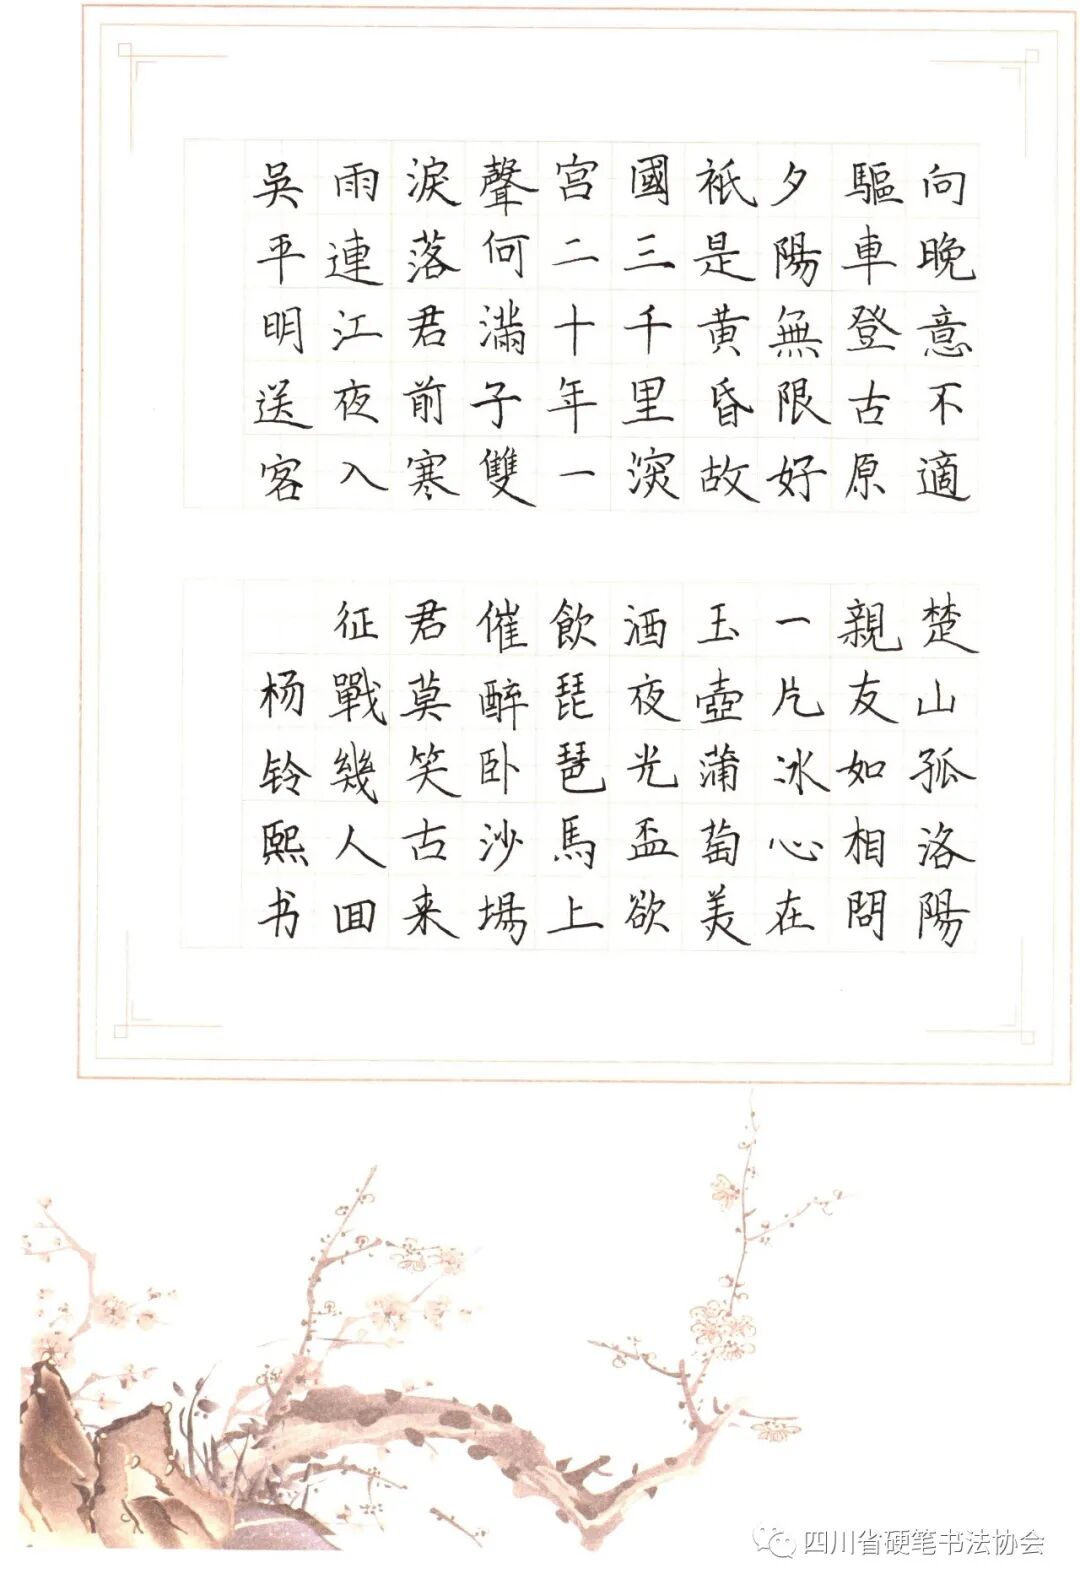 向晚意不適
驅車登古原
夕陽無限好
祇是黄昏故
國三千里深
宫二十年一
聲何滿子雙
淚落君前寒
雨連江夜入
吳平明送客
楚山孤洛陽
親友如相問
一片冰心在
玉壺蒲萄美
酒夜光盃欲
飲琵琶馬上
催醉卧沙場
君莫笑古来
征戰幾人回
杨铃熙书
四川省硬笔书法协会